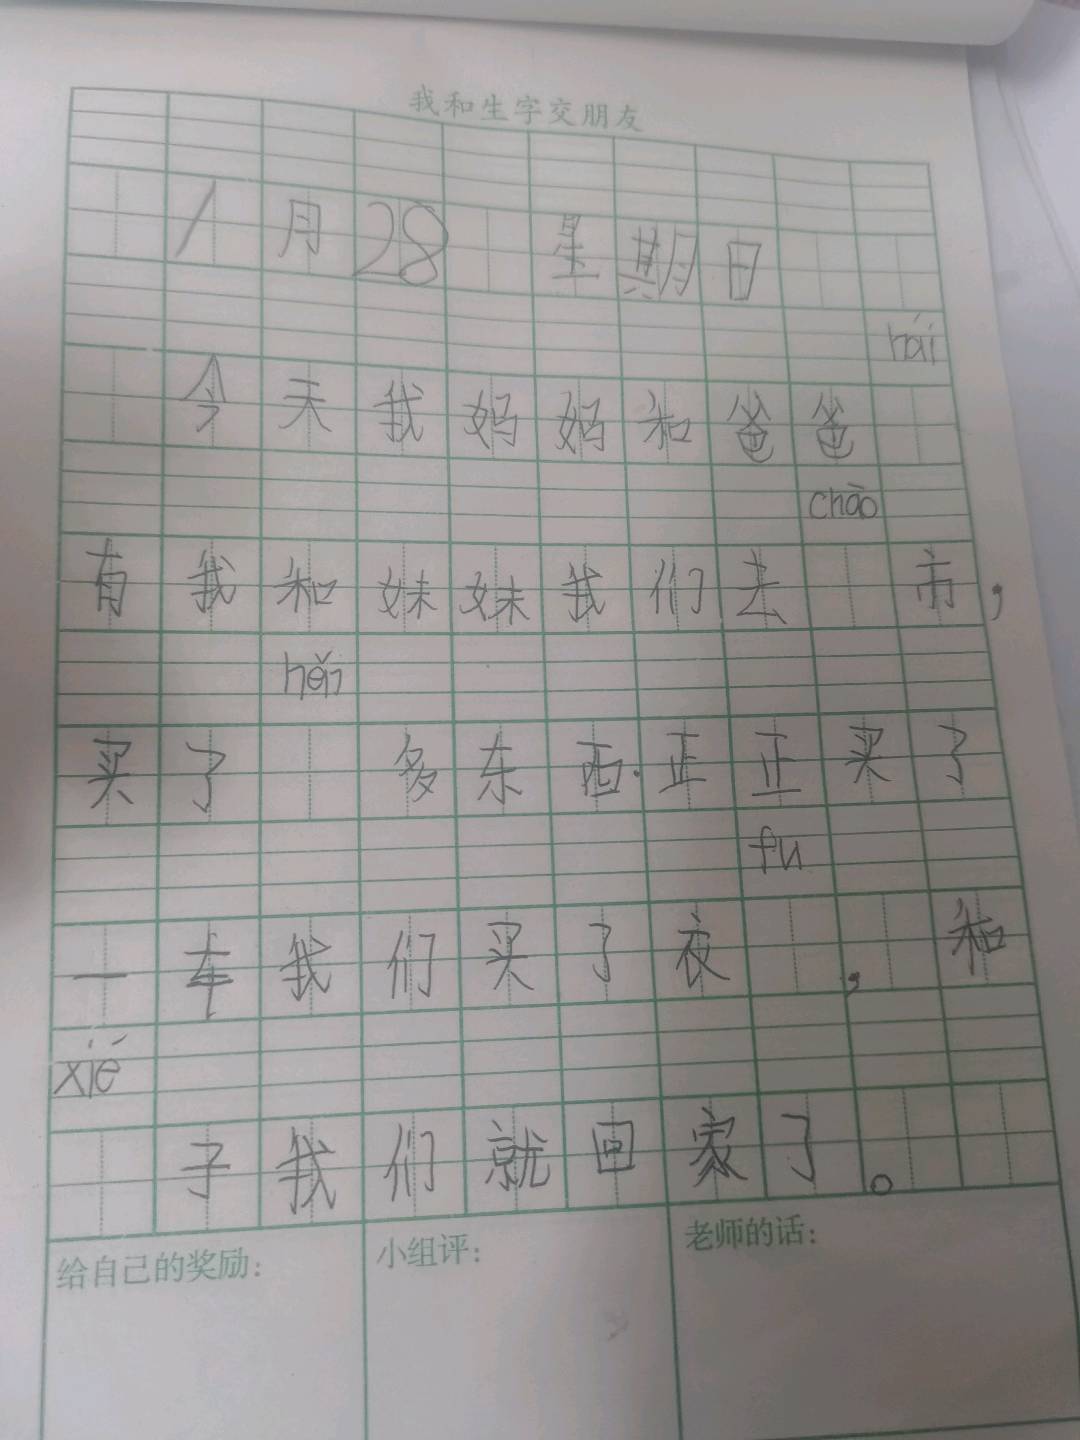 我和生字交朋友
1月28 星期日
hái
今天我妈妈和爸爸
chāo
有我和妹妹我们去 市，
hěn
买了 多东西.正正买了
fu
一车我们买了衣 ，和
xié
子我们就回家了。
给自己的奖励： 小组评： 老师的话：